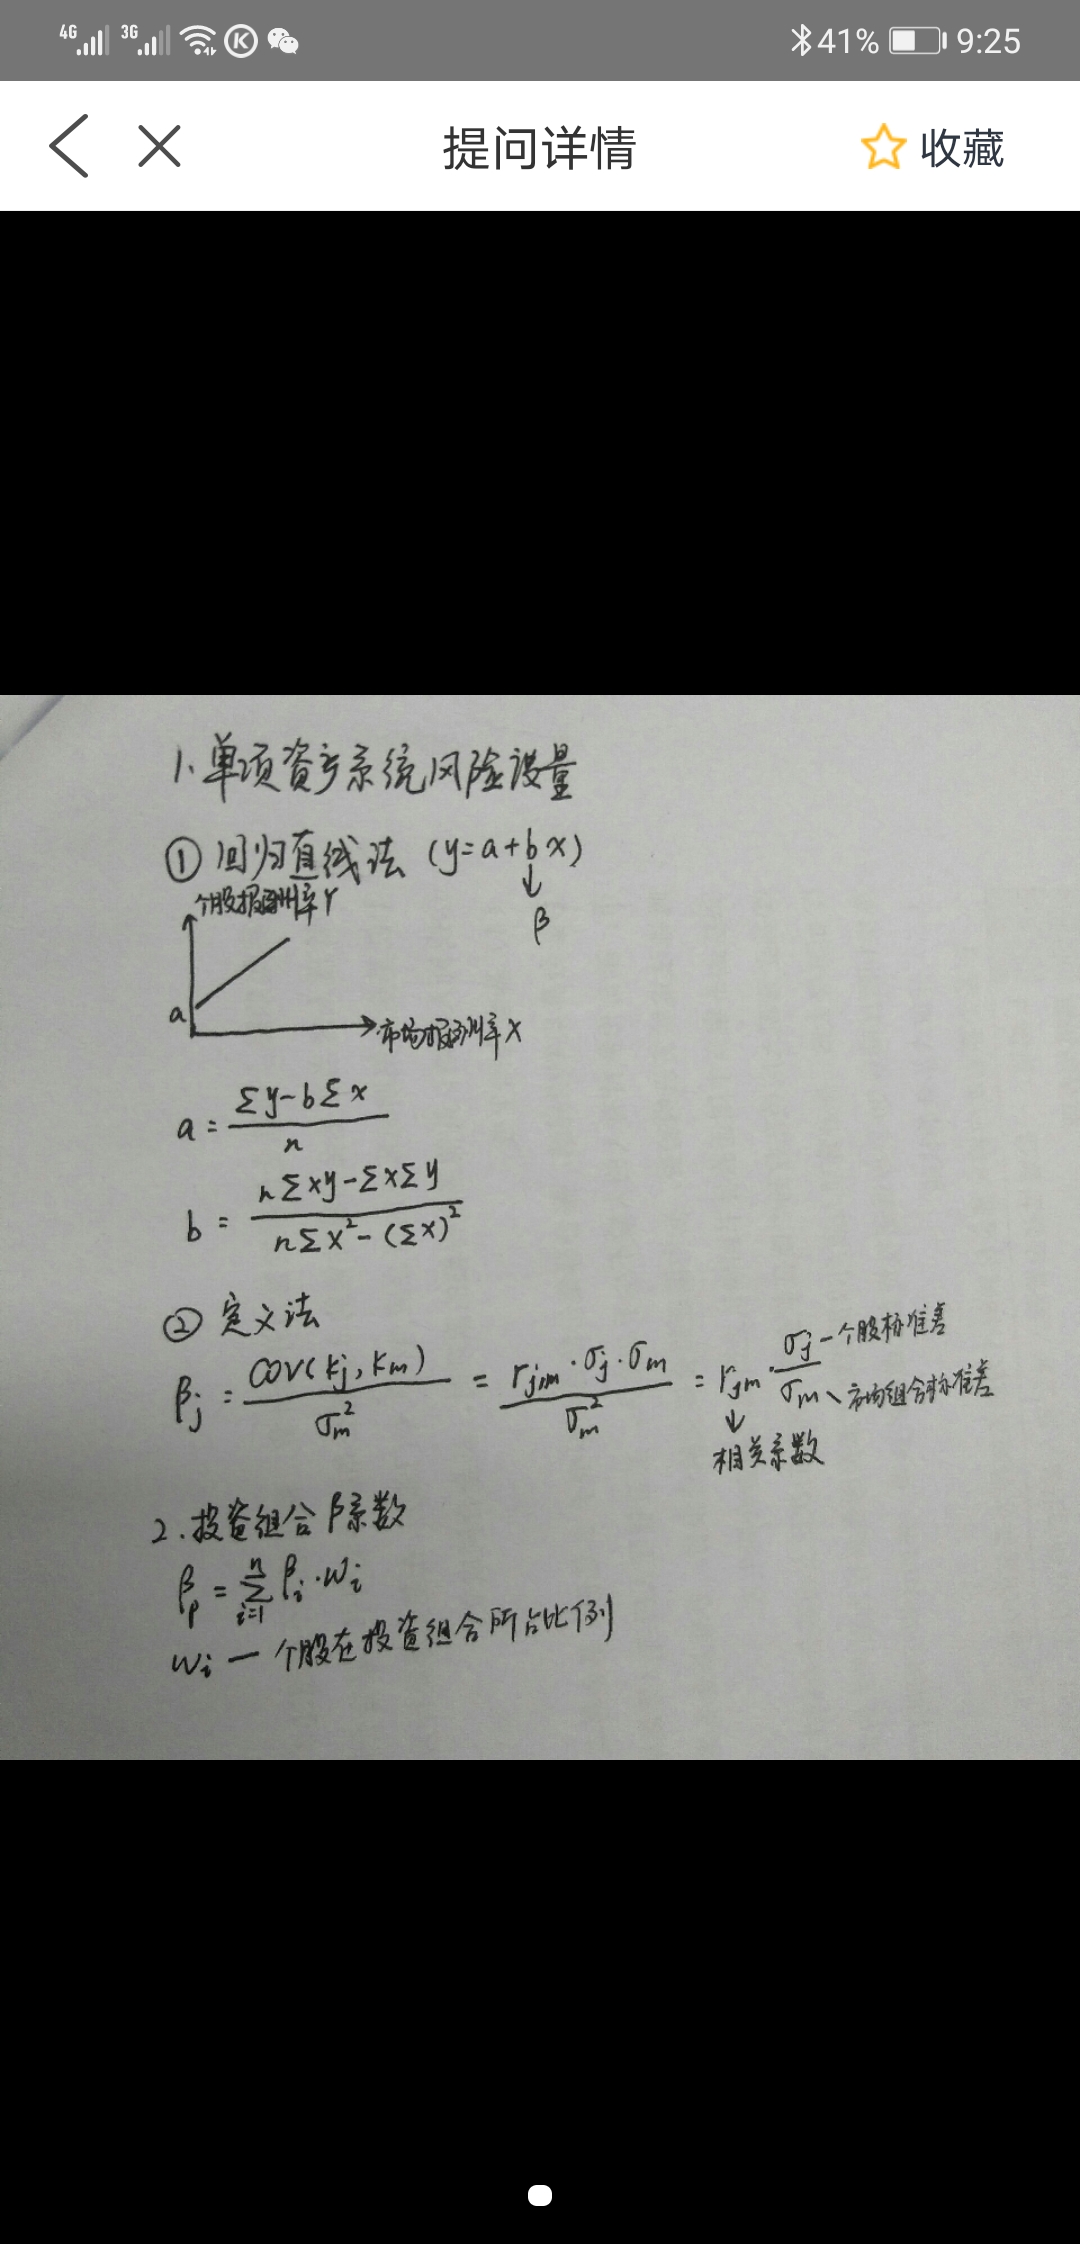 4G 3G 41% 9:25
提问详情 收藏
1、单项资产系统风险设量
① 回归直线法 (y=a+bx)
↓
β
个股报酬率Y
a
市场报酬率X
a = (Σy-bΣx)/n
b = (nΣxy-ΣxΣy)/(nΣx²-(Σx)²)
② 定义法
βj = COV(Kj,Km)/σm² = rjm·σj·σm/σm² = rjm·σj/σm
σj — 个股标准差
σm、市场组合标准差
↓
相关系数
2.投资组合β系数
βp = Σ(i=1→n) βi·Wi
Wi — 个股在投资组合所占比例